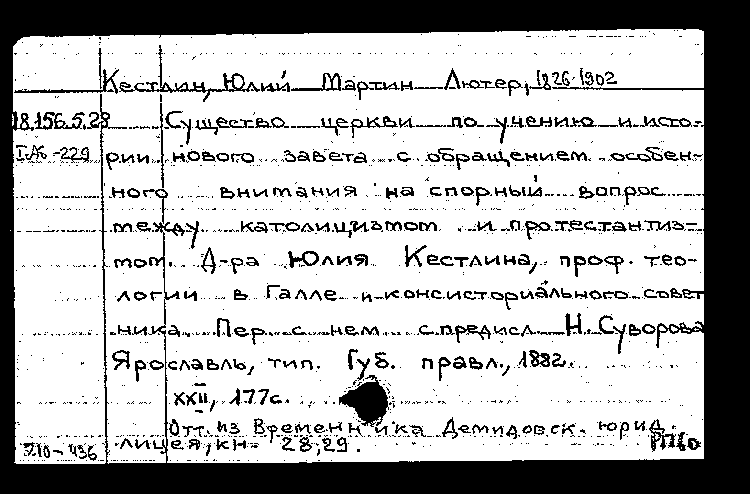 Кестлин, Юлий Мартин Лютер, 1826-1902
18.156.5.28 Существо церкви по учению и исто-
рии нового завета с обращением особен-
ного внимания на спорный вопрос
между католицизмом и протестантиз-
мом. Д-ра Юлия Кестлина, проф. тео-
логии в Галле и консисториального совет
ника. Пер. с нем. с предисл. Н. Суворова
Ярославль, тип. Губ. правл., 1882.
XXII, 177с.
Отт. из Временника Демидовск. юрид.
лицея, кн. 28; 29.